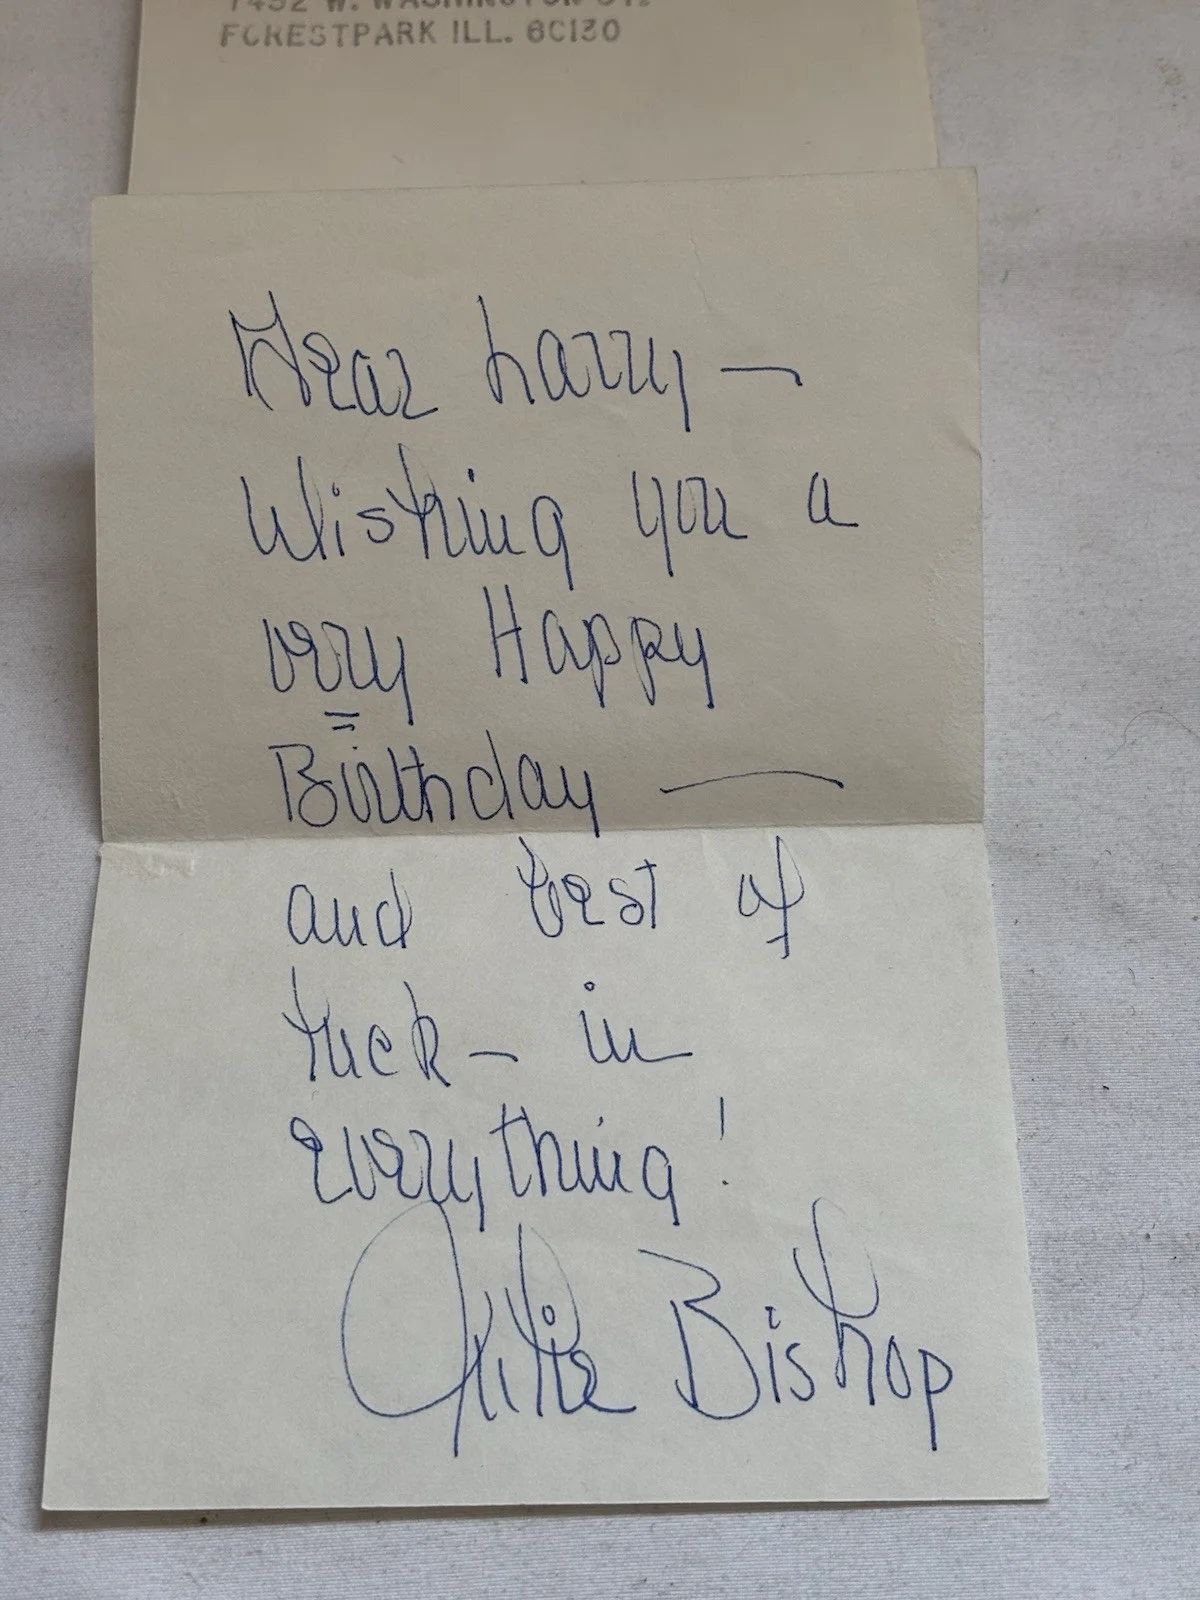 7452 W. WASHINGTON ST.
FORESTPARK ILL. 60130
Dear Larry —
Wishing you a
very Happy
Birthday —
and best of
luck — in
everything!
Julie Bishop